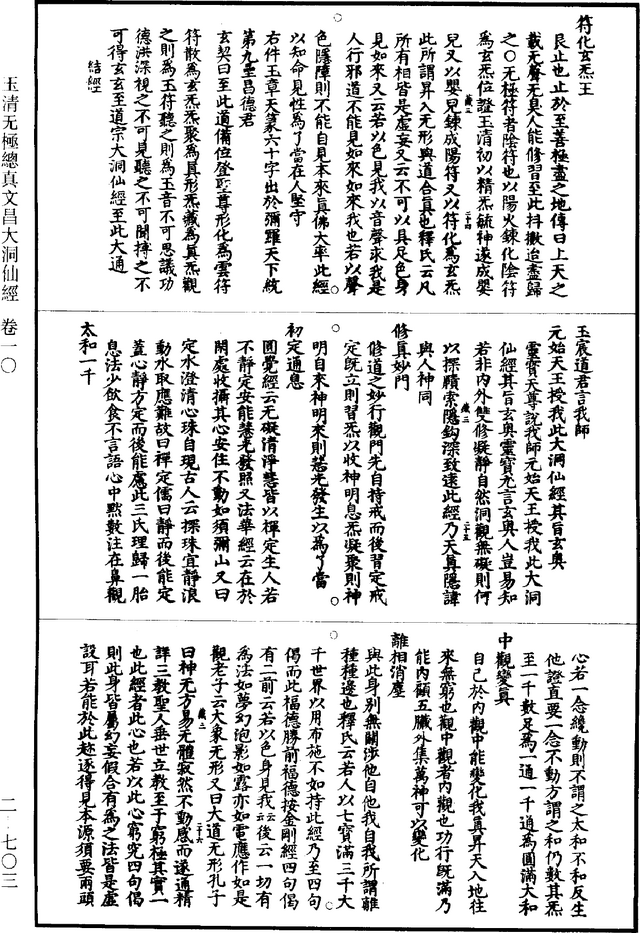 符化玄炁王
艮止也止於至善極盡之地傳曰上天之
載无聲无息人能修習至此抖擻迨盡歸
之○无極符者陰符也以陽火鍊化陰符
為玄炁位證玉清初以精炁毓神遂成嬰
兒又以嬰兒鍊成陽符又以符化為玄炁
此所謂昇入无形與道合真也釋氏云凡
所有相皆是虛妄又云不可以具足色身
見如來又云若以色見我以音聲求我是
人行邪道不能見如來如來我也若以聲
色隱障則不能自見本來真佛大率此經
以知命見性為了當在人堅守
右件玉章天篆六十字出於彌羅天下統
第九壘昌德君
玄契曰至此道備位登聖尊形化為雲符
符散為玄炁炁聚為真形炁藏為真炁觀
之則為玉符聽之則為玉音不可思議功
德洪深視之不可見聽之不可聞搏之不
可得玄玄至道宗大洞仙經至此大通
結經
玉宸道君言我師
元始天王授我此大洞仙經其旨玄奧
靈寶天尊說我師元始天王授我此大洞
仙經其旨玄奧靈寶尤言玄奧人豈易知
若非內外雙修凝靜自然洞觀無礙則何
以探賾索隱鈎深致遠此經乃天真隱諱
與人神同
修真妙門
修道之妙行觀門先自持戒而後習定戒
定既立則習炁以收神明息炁凝聚則神
明自來神明來則慧光發生以為了當
初定通息
圓覺經云无礙清淨慧皆以禪定生人若
不靜定安能慧光發照又法華經云在於
閑處收攝其心安住不動如須彌山又曰
定水澄清心珠自現古人云探珠宜靜浪
動水取應難故曰禪定儒曰靜而後能定
蓋心靜方定而後能慮此三氏理歸一胎
息法少飲食不言語心中點數注在鼻觀
太和一千
心若一念纔動則不謂之太和不和反生
他證直要一念不動方謂之和仍數其炁
至一千數足為一通一千通為圓滿大和
中觀變真
自己於內觀中能變化我真昇天入地往
來無窮也觀中觀者內觀也功行既滿乃
能內顧五臟外集萬神可以變化
離相消塵
與此身別無關涉他自他我自我所謂離
種種邊也釋氏云若人以七寶滿三千大
千世界以用布施不如持此經乃至四句
偈而此福德勝前福德按金剛經四句偈
有二前云若以色身見我云云後云一切有
為法如夢幻泡影如露亦如電應作如是
觀老子云大象无形又曰大道无形孔子
曰神无方易无體寂然不動感而遂通精
譯三教聖人垂世立教至于窮極其實一
也此經者此心也若以此心窮究四句偈
則此身皆屬幻妄假合有為之法皆是虛
設耳若能於此趂逐得見本源須要兩頭
玉清无極總真文昌大洞仙經 卷一〇
二—七〇三